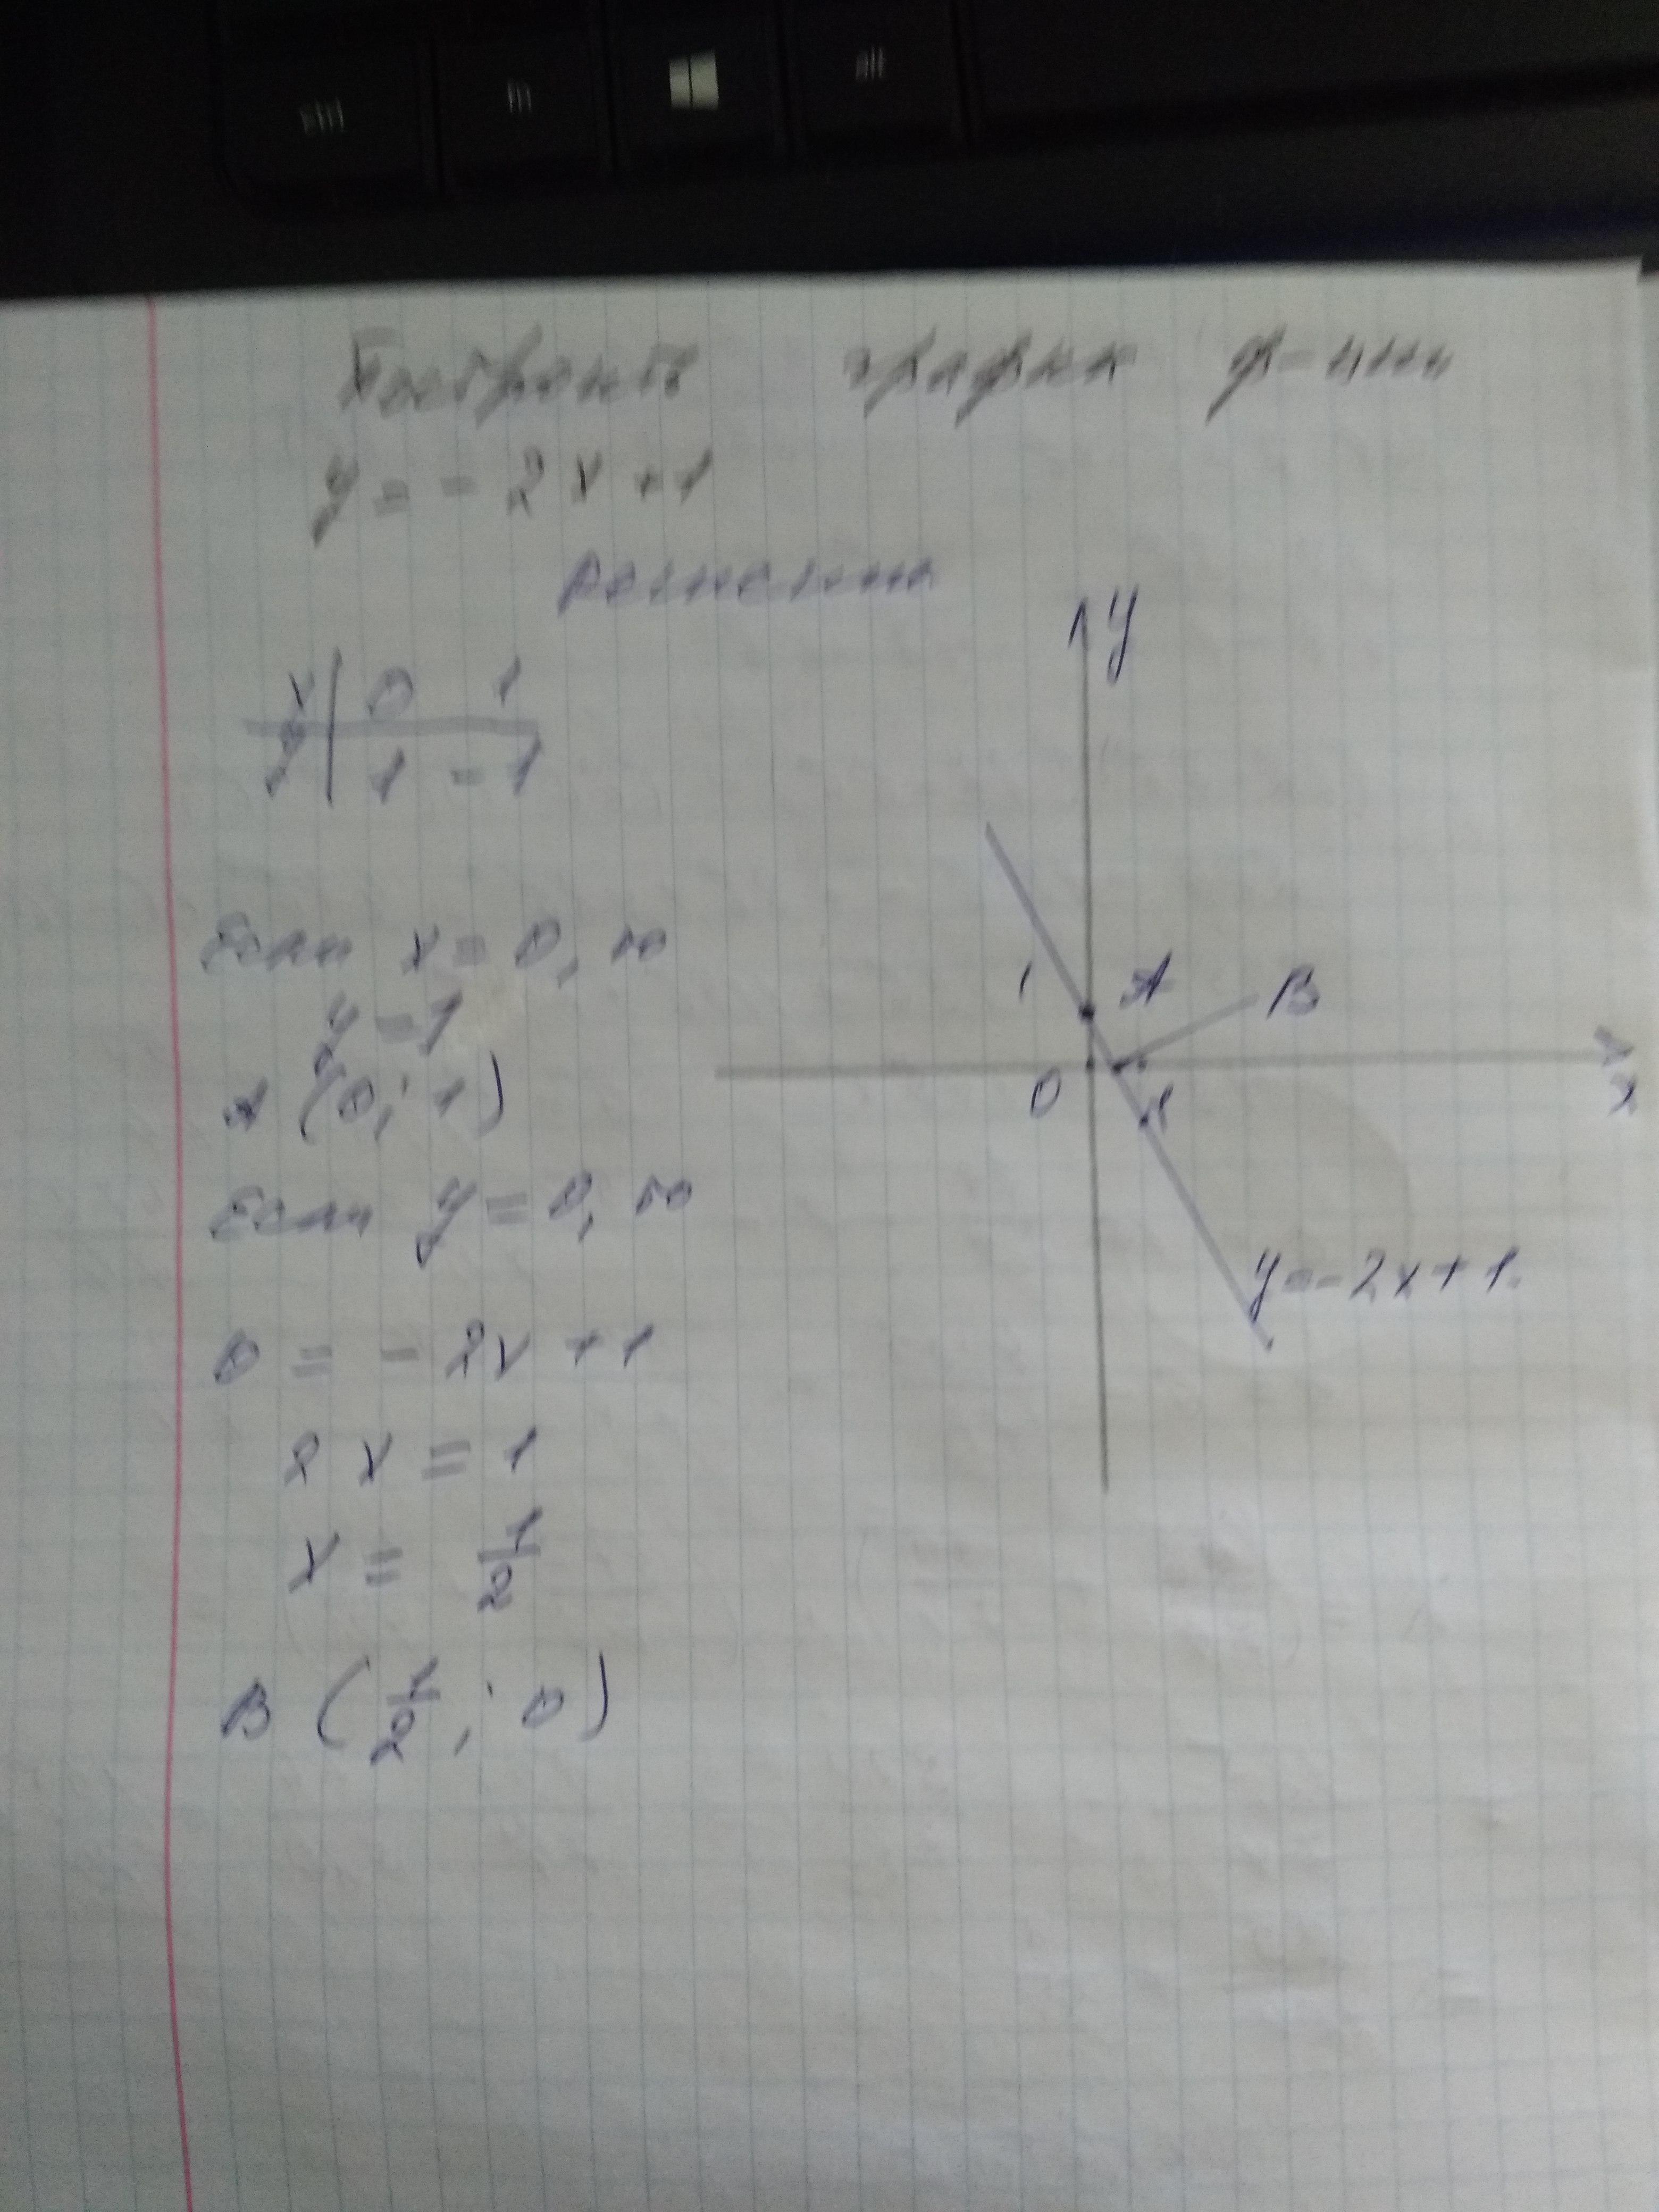 ctrl fn alt
Построить график ф-ции
y = - 2x + 1
Решение
x | 0 1
y | 1 -1
Если x = 0, то
y = 1
A (0; 1)
Если y = 0, то
0 = - 2x + 1
2x = 1
x = 1/2
B (1/2; 0)
y
1 A B
0 1 x
y = -2x + 1.